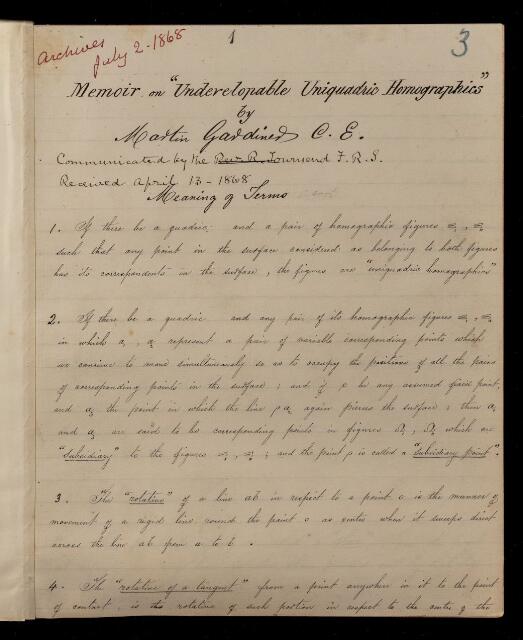 Archives
July 2-1868
1
3
Memoir on "Undevelopable Uniquadric Homographics"
by
Martin Gardiner C. E.
Communicated by the Rev. R. Townsend F. R. S.
Received April 13 - 1868
Meaning of Terms
1. If there be a quadric and a pair of homographic figures
such that any point in the surface considered as belonging to both figures
has its correspondents in the surface, the figures are "uniquadric homographics"
2. If there be a quadric and any pair of its homographic figures
in which a, a represent a pair of variable corresponding points which
we conceive to move simultaneously so as to occupy the positions of all the pairs
of corresponding points in the surface; and if ρ be any assumed fixed point,
and a3 the point in which the line ρ a2 again pierces the surface; then a1
and a3 are said to be corresponding points in figures which are
"subsidiary" to the figures ; and the point ρ is called a "subsidiary point".
3. The "rotative" of a line ab in respect to a point c is the manner of
movement of a rigid line round the point c as center when it sweeps direct
across the line ab from a to b.
4. The "rotative of a tangent" from a point anywhere in it to the point
of contact, is the rotative of such portion in respect to the center of the